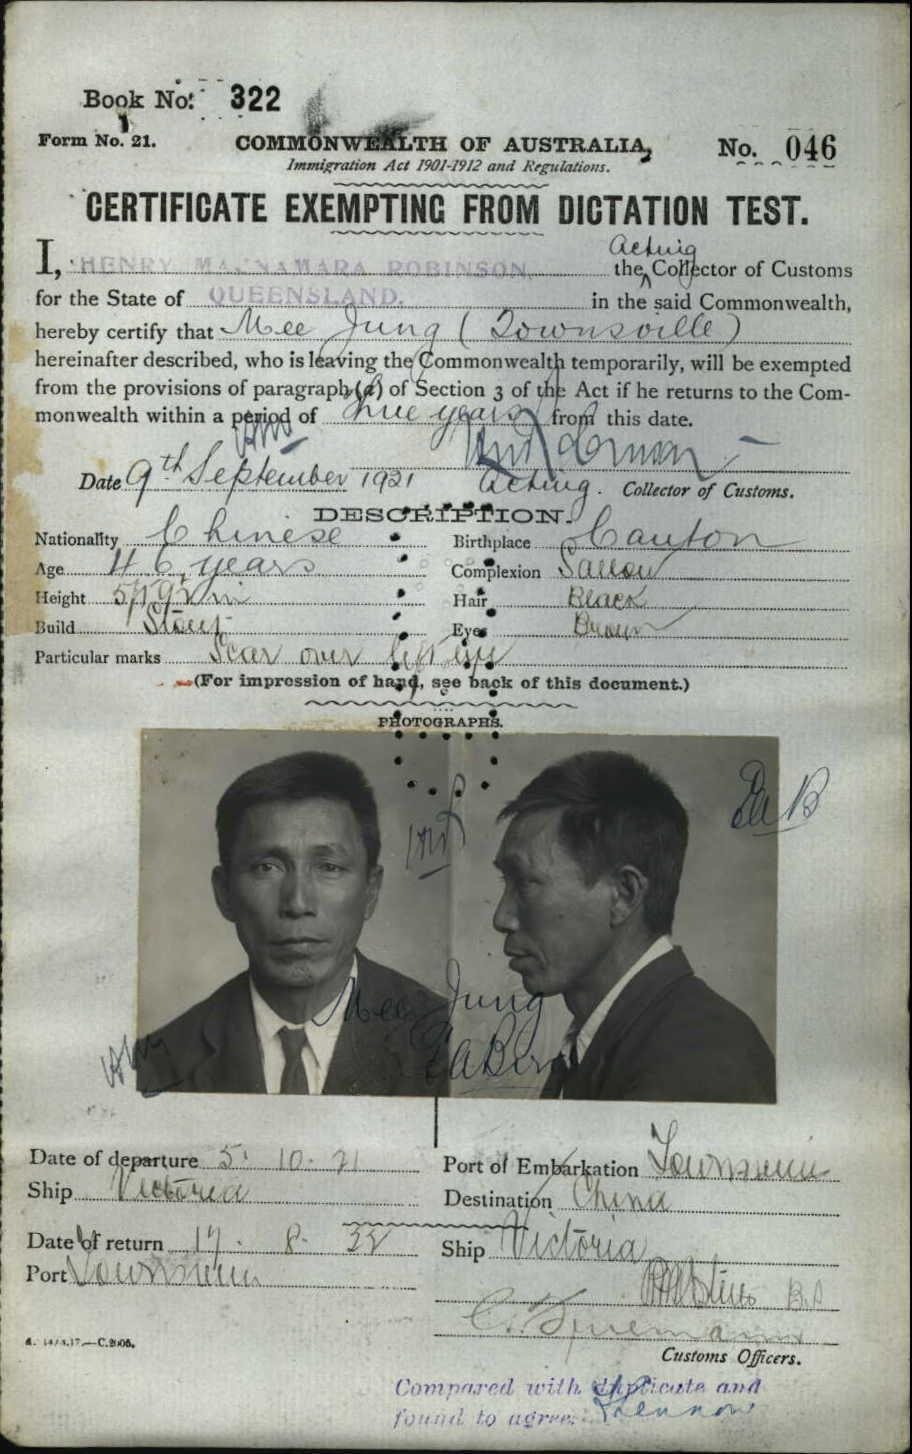 Book No: 322
Form No. 21.
COMMONWEALTH OF AUSTRALIA,
No. 046
Immigration Act 1901-1912 and Regulations.
CERTIFICATE EXEMPTING FROM DICTATION TEST.
Acting
I, HENRY MACNAMARA ROBINSON, the Collector of Customs
for the State of QUEENSLAND. in the said Commonwealth,
hereby certify that Mee Jung (Townsville)
hereinafter described, who is leaving the Commonwealth temporarily, will be exempted
from the provisions of paragraph (a) of Section 3 of the Act if he returns to the Com-
monwealth within a period of years from this date.
Date 9th September 1921 Acting. Collector of Customs.
DESCRIPTION.
Nationality Chinese Birthplace Canton
Age 46 years Complexion Sallow
Height 5ft 9½ in Hair Black
Build Stout Eyes Brown
Particular marks Scar over left eye
(For impression of hand, see back of this document.)
PHOTOGRAPHS.
Mee Jung
Date of departure 5. 10. 21 Port of Embarkation Townsville
Ship Victoria Destination China
Date of return 17. 8. Ship Victoria
Port Townsville
Customs Officers.
Compared with duplicate and
found to agree.